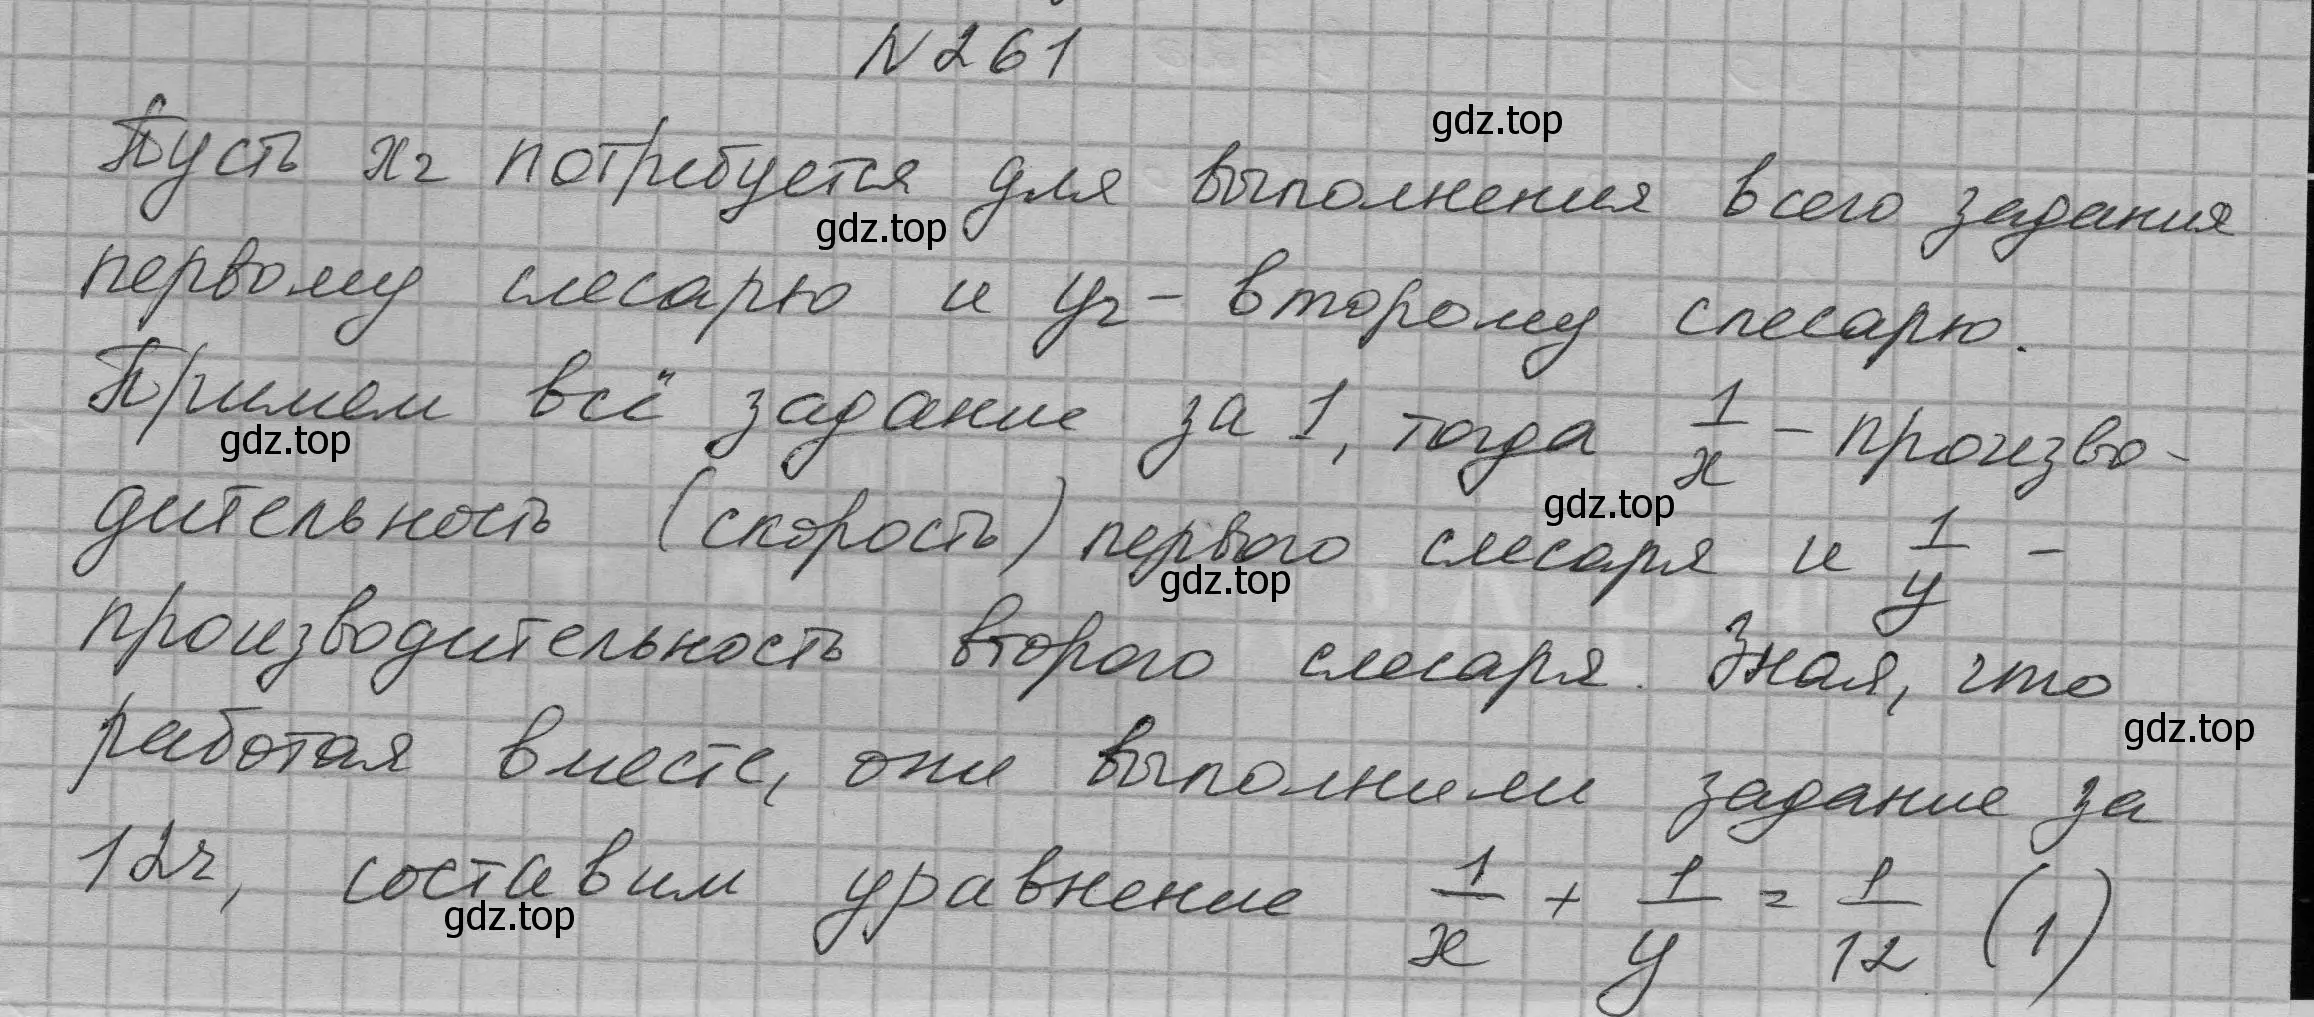 N261
gdz.top
Пусть x ч потребуется для выполнения всего задания
gdz.top
первому слесарю и y ч - второму слесарю.
Примем всё задание за 1, тогда 1/x - произво-
gdz.top
gdz.top
дительность (скорость) первого слесаря и 1/y -
gdz.top
производительность второго слесаря. Зная, что
gdz.top
работая вместе, они выполнили задание за
12ч, составим уравнение 1/x + 1/y = 1/12 (1)
gdz.top